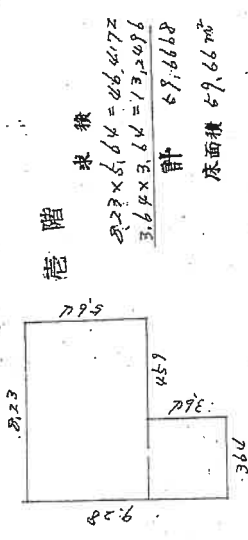 壱階
求積
8.23×5.64=46.4172
3.64×3.64=13.2496
計 59.6668
床面積 59.66㎡
8.23
5.64
4.59
3.64
3.64
9.28